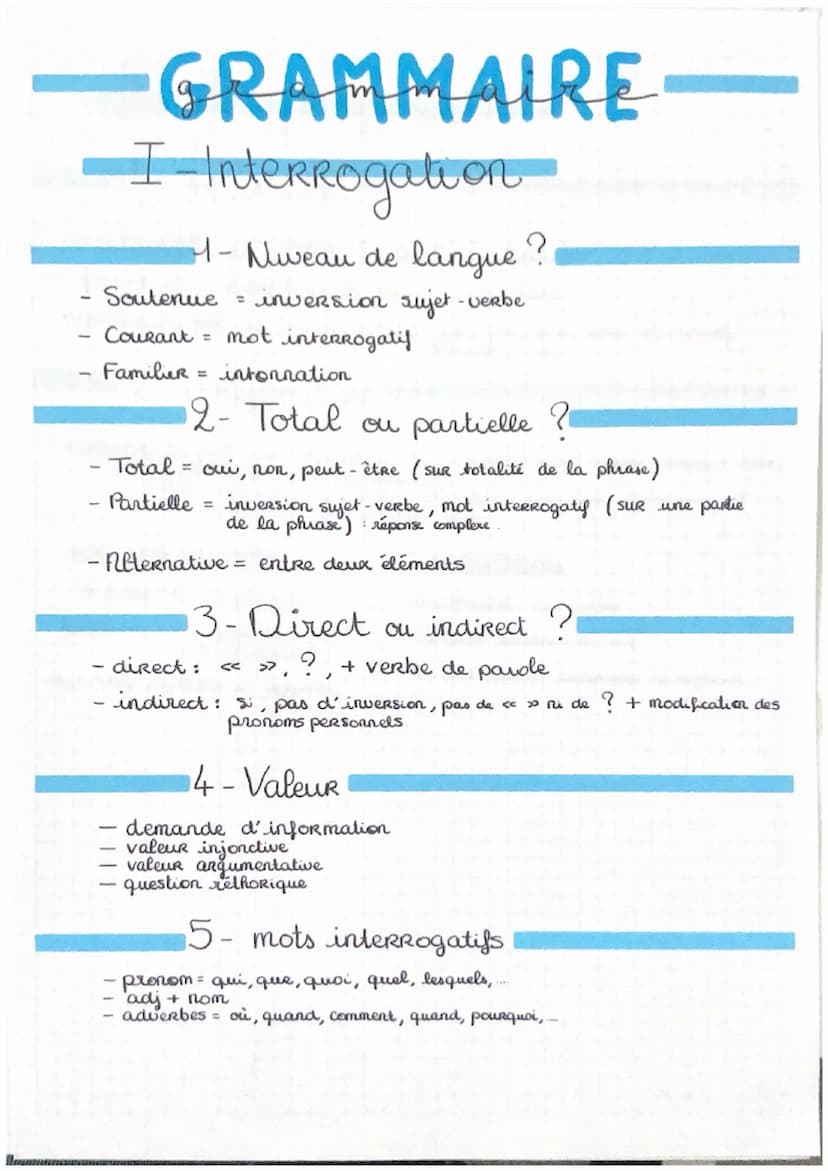 GRAMMAIRE
grammaire
I - Interrogation
1 - Niveau de langue ?
- Soutenue = inversion sujet - verbe
- Courant = mot interrogatif
- Familier = intonnation
2 - Total ou partielle ?
- Total = oui, non, peut - être (sur totalité de la phrase)
- Partielle = inversion sujet - verbe, mot interrogatif (sur une partie
de la phrase) : réponse complexe.
- Alternative = entre deux éléments
3 - Direct ou indirect ?
- direct : << >>, ?, + verbe de parole
- indirect : si, pas d'inversion, pas de << >> ni de ? + modification des
pronoms personnels
4 - Valeur
- demande d'information
- valeur injonctive
- valeur argumentative
- question réthorique
5 - mots interrogatifs
- pronom = qui, que, quoi, quel, lesquels, ...
- adj + nom
- adverbes = où, quand, comment, quand, pourquoi, ...